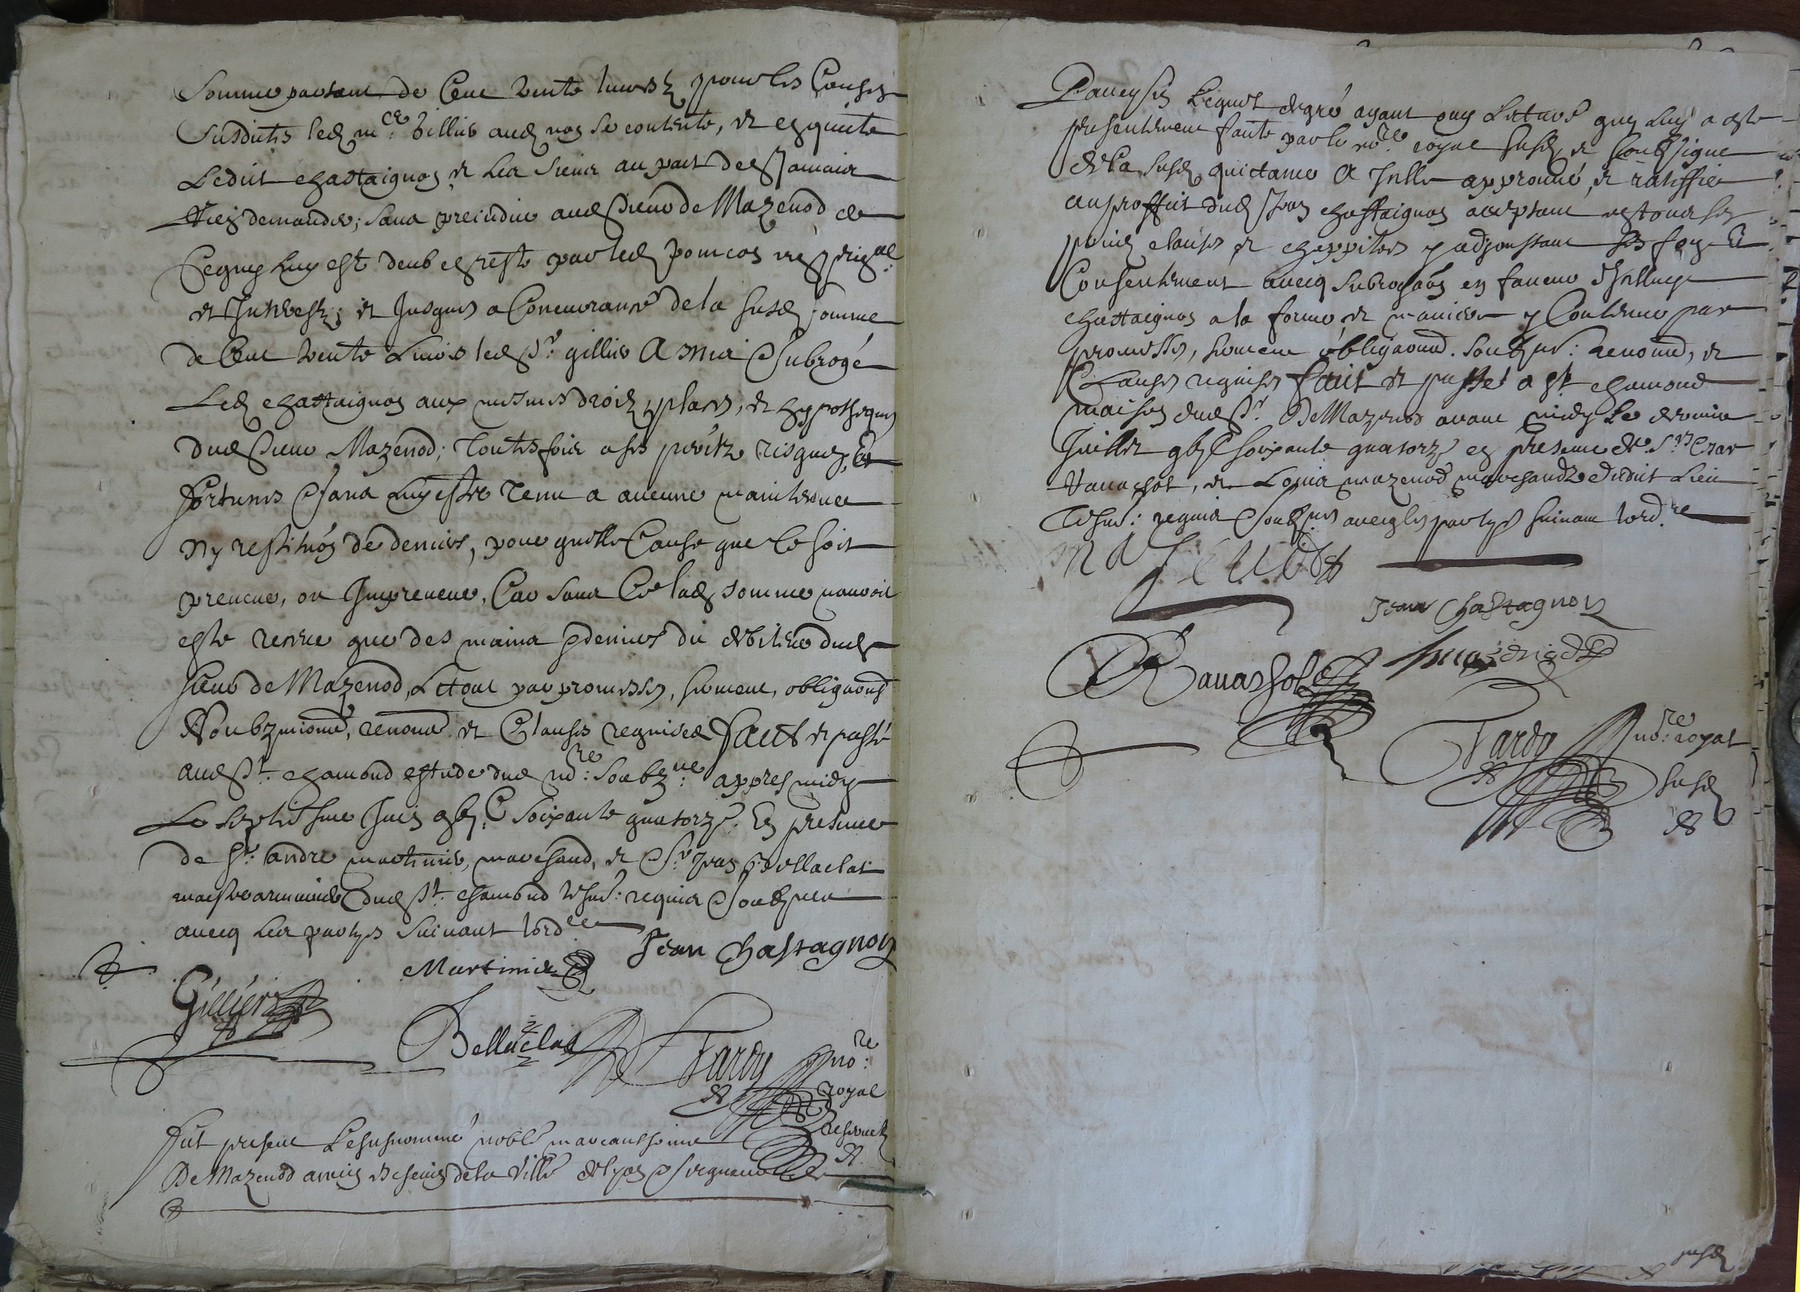 Somme partant de Cent trente livres pour les Causes
susdittes led mce Gillier aud nom se contente, et en quitte
Ledict chattaignon et les siens au pact de Jamais
rien demander; sans prejudice aud Sieur de Mazenod de
Ce quy luy est deub et reste par led
et Interestz; et Jusques a Concurrance de la susd somme
de Cent trente Livres led Sr gillier A mis et subrogé
Led chattaignon aux mesmes droictz places, et hypotheques
dud Sieur Mazenod; touttesfois a ses perilz risques, Et
fortunes sans luy estre tenu a aucune maintenue
ny restituon de deniers, pour quelle Cause que Ce soit
preveue, ou Impreveue, Car sans Ce lad somme nauroit
esté receue que des mains et deniers du debiteur dud
sieur de Mazenod, Le tout par promesses, serment, obligaons
renonc et Clauses requises faict et passé
aud St chamond estude dud nore soubzne appres midy
Le septiesme Juin gbjC soixante quatorze. En presence
de Sr andre martinie, marchand, et Sr Jean Bellaclat
maistre dud St chamond tesm: requis et soubznes
avecq Les partyes suivant lordce
Jean Chastagnon
Martinie
Gillier
Bellaclat
Tardy nore
royal
reservé
fut present Le susnommé noble marcanthoine
De Mazenod antien eschevin de la Ville de lyon et seigneur
susd
Paveysin Lequel de gré ayant ouy Lecture quy luy a esté
presentement faicte par le nore royal susd et soubzsigné
de la susd quictance A Icelle approuvé, et ratiffié
au proffict dud Jean chattaignon acceptant
clauses et chappitres y adjoustant sa foy Et
Consentement avecq subrogaon en faveur dIcelluy
chattaignon a la forme, et maniere y Contenue par
promesses, serment obligaons. soubzm: Renond, et
Clauses requises faict et passé a St chamond
maison dud Sr De Mazenod avant midy le
Juillet gbjC soixante quatorze en presence de Srs Cezar
Ravachol, et Louis mazenod marchandz dudict Lieu
tesm: requis et soubznes avecq les partyes suivant lordre
Mazenod
Jean Chastagnon
Ravachol
Tardy nore royal
susd
susd